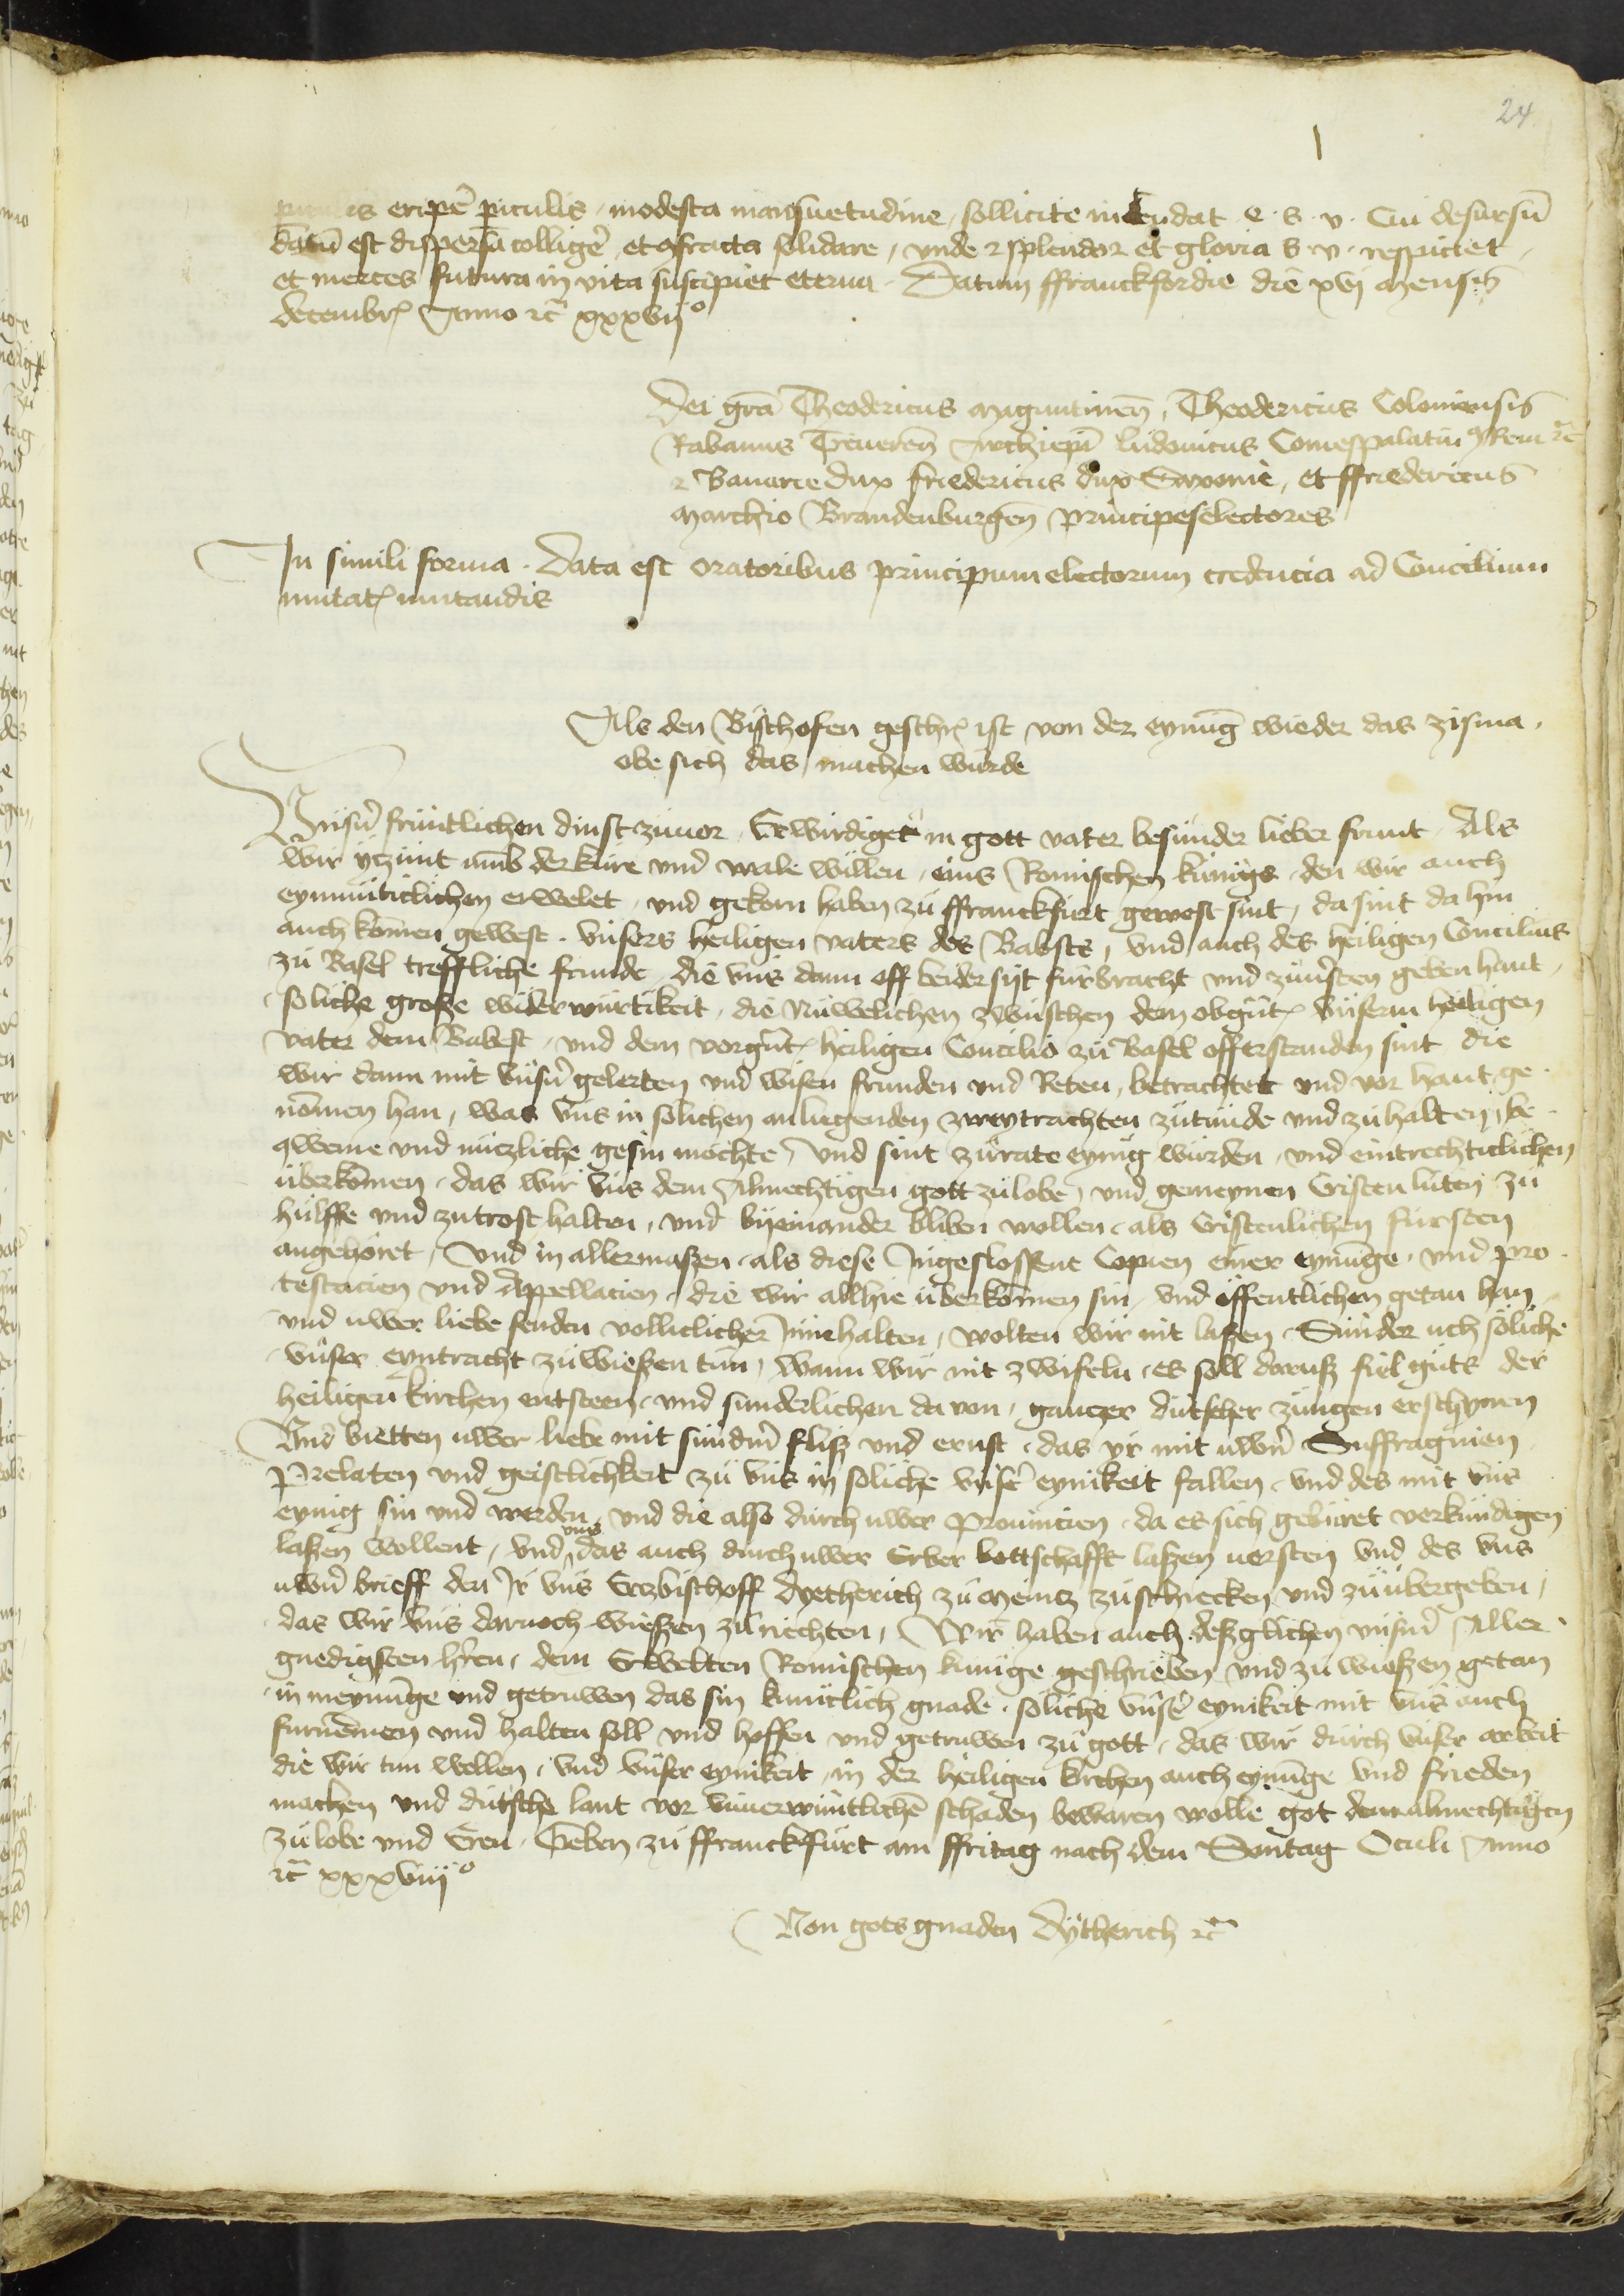 24
eripe᷑ p̲iculis, modesta mansuetudine, sollicite intendat e. s. v. Cui desursū
datū est dispersa collige᷑, et ꝯfracta solidare, vnde & splendor et gloria s. v. respiciet,
et merces futura in vita suscipiet eterna. Datum ffranckfordie die xvj mensis
decembrꝭ Anno ⁊c̃ xxxvijº
Dei gr̄a Theodericus maguntineñ, Theodericus Coloniensis
Rabanus Treuereñ Archiepī ludouicus Comespalatin᷒ Reni ⁊c̃
& Bauarie dux friedericus dux Saxonie, et ffriedericus
marchio Brandenburgeñ principeselectores
In simili forma. data est oratoribus principum electorum credencia ad Concilium
mutatꝭ mutandis
Als den Bischofen geschrꝭ ist von der eynūg wieder das zisma,
obe sich das machen wurde
Vnsñ fruntlichen dinst zuuor, Erwirdiger in gott vater besunder lieber frunt, Als
wir yczunt umb der kure vnd wale willen, eins Romischen kunigs, den wir auch
eynmuticlichen erwelet, vnd gekorn haben zu ffranckfurt gewest sint, da sint da hin
auch komēn gewest. vnsers heiligen vaters des Babsts, vnd auch des heiligen Concilius
zu Basel treffliche frunde, die vns dann off beider sijt furbracht vnd zuuersten geben hant,
soliche große widerwurtikeit, die nuwelichen zwuschen dem obgn̄tꝭ vnserm heiligen
vater dem Babest, vnd dem vorgn̄tꝭ heiligen Concilio zu Basel offerstanden sint die
wir dann mit vnsñ gelerten vnd wisen frunden vnd Reten, betrachtet vnd vor hant ge
nōmen han, was vns in solichen anligenden zweytrachten zutunde vnd zu halten, be
qweme vnd nuczliche gesin mochte, vnd sint zu rate eynig wurden, vnd eintrechticlichen
uberkōmen, das wir vns dem Almechtigen gott zu lobe, vnd gemeynen Cristen luten zu
hulffe vnd zu trost halten, vnd byeinander bliben wollen, als Cristenlichen fursten
angehoret, vnd in allermaßen, als diese Ingeslossene Copien einer eynūge, vnd pro
testacien vnd Appellacien, die wir allhie uberkōmen sin, vnd offentlichen getan han,
vnd uwer liebe senden volliclicher Innehalten, wolten wir nit laßen, Sunder uch soliche
vnser eyntracht zu wießen tun, wann wir nit zwifeln, es soll daruß fiel guts der
heiligen kirchen entsteen, vnd sunderlichen da von, ganczer dutscher zungen erschynen
Vnd bietten uwer liebe mit sundern̄ fliß vnd ernst, das yr mit uwern̄ Suffraganien
Prelaten vnd geistlichkeit zu vns in soliche vnser eynikeit fallen, vnd des mit vns
eynig sin vnd werden, vnd die also durch uwer Prouincien, da es sich geburet verkundigen
vnns
laßen wollent, vnd das auch durch uwer Erber bottschafft laßen uersten vnd des vns
uwñ brieff den Ir vns Erczbischoff Dyetherich zu Mencz zu schiecken vnd zu ubergeben,
das wir vns darnoch wießen zu richten, Wir haben auch deßglichen vnsern Aller
gnedigsten h̄ren, dem Erwelten Romischen kunige geschrieben vnd zu wießen getan
in meynūge vnd getruwen das sin kuniclich gnade, soliche vnser eynikeit mit vns auch
furnēmen vnd halten soll vnd hoffen vnd getruwen zu gott, das wir durch vnser arbeit
die wir tun wollen, vnd vnser eynikeit, in der heiligen kirchen auch eynūge vnd frieden
machen vnd dutsche lant vor vnuerwintlichē schaden bewaren wolle got dem almechtigen
zu lobe vnd Eren. Geben zu ffranckfurt am ffritag nach dem Sontag Oculi Anno
⁊c̃ xxxviijº
Von gots gnaden Dytherich ⁊c̃